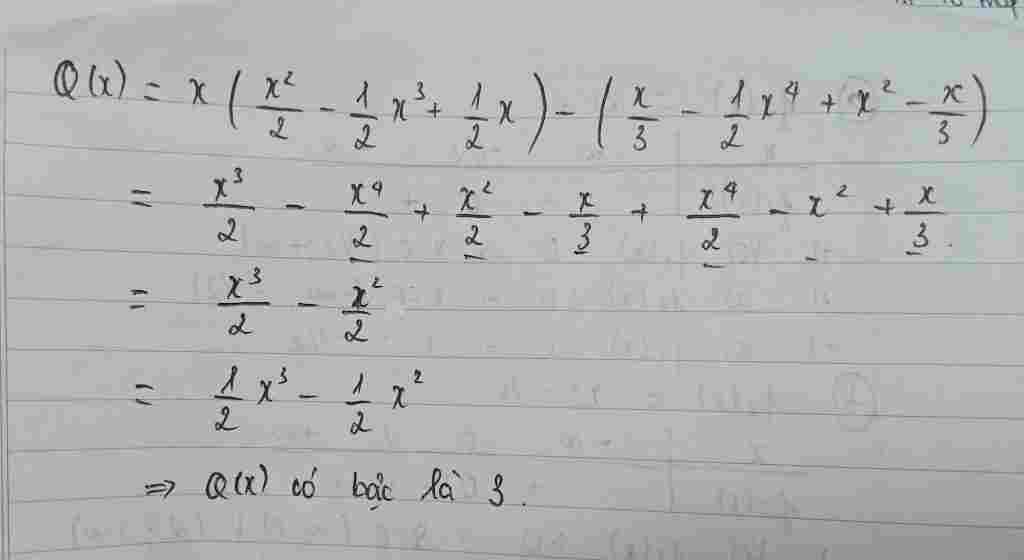 Q(x) = x (x²/2 - 1/2 x³ + 1/2 x) - (x/3 - 1/2 x⁴ + x² - x/3)
= x³/2 - x⁴/2 + x²/2 - x/3 + x⁴/2 - x² + x/3.
= x³/2 - x²/2
= 1/2 x³ - 1/2 x²
⇒ Q(x) có bậc là 3.